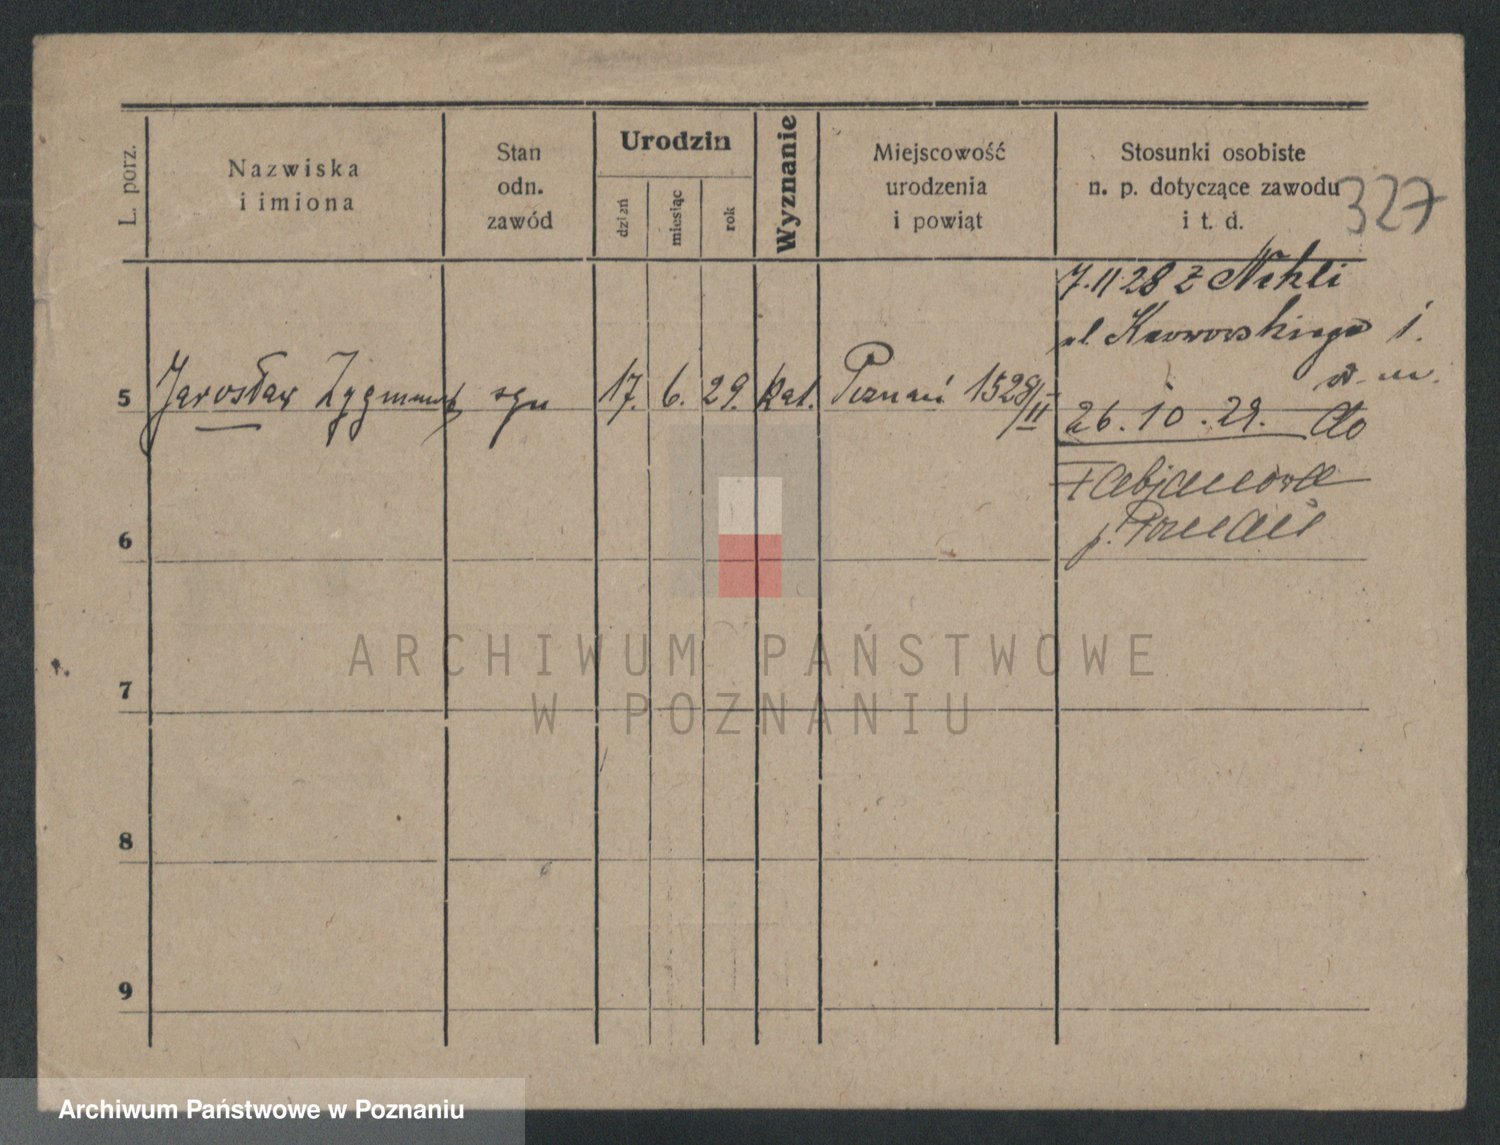 L. porz.
Nazwiska
i imiona
Stan
odn.
zawód
Urodzin
dzień
miesiąc
rok
Wyznanie
Miejscowość
urodzenia
i powiat
Stosunki osobiste
n. p. dotyczące zawodu
i t. d.
327
7.11 28 z Nekli
ul. Karwowskiego 1.
5 Jarosław Zygmunt syn 17. 6. 29. kat. Poznań 1528/II
26.10.29. do
Fabjanowa
p. Poznań
6
7
8
9
ARCHIWUM PAŃSTWOWE
W POZNANIU
Archiwum Państwowe w Poznaniu